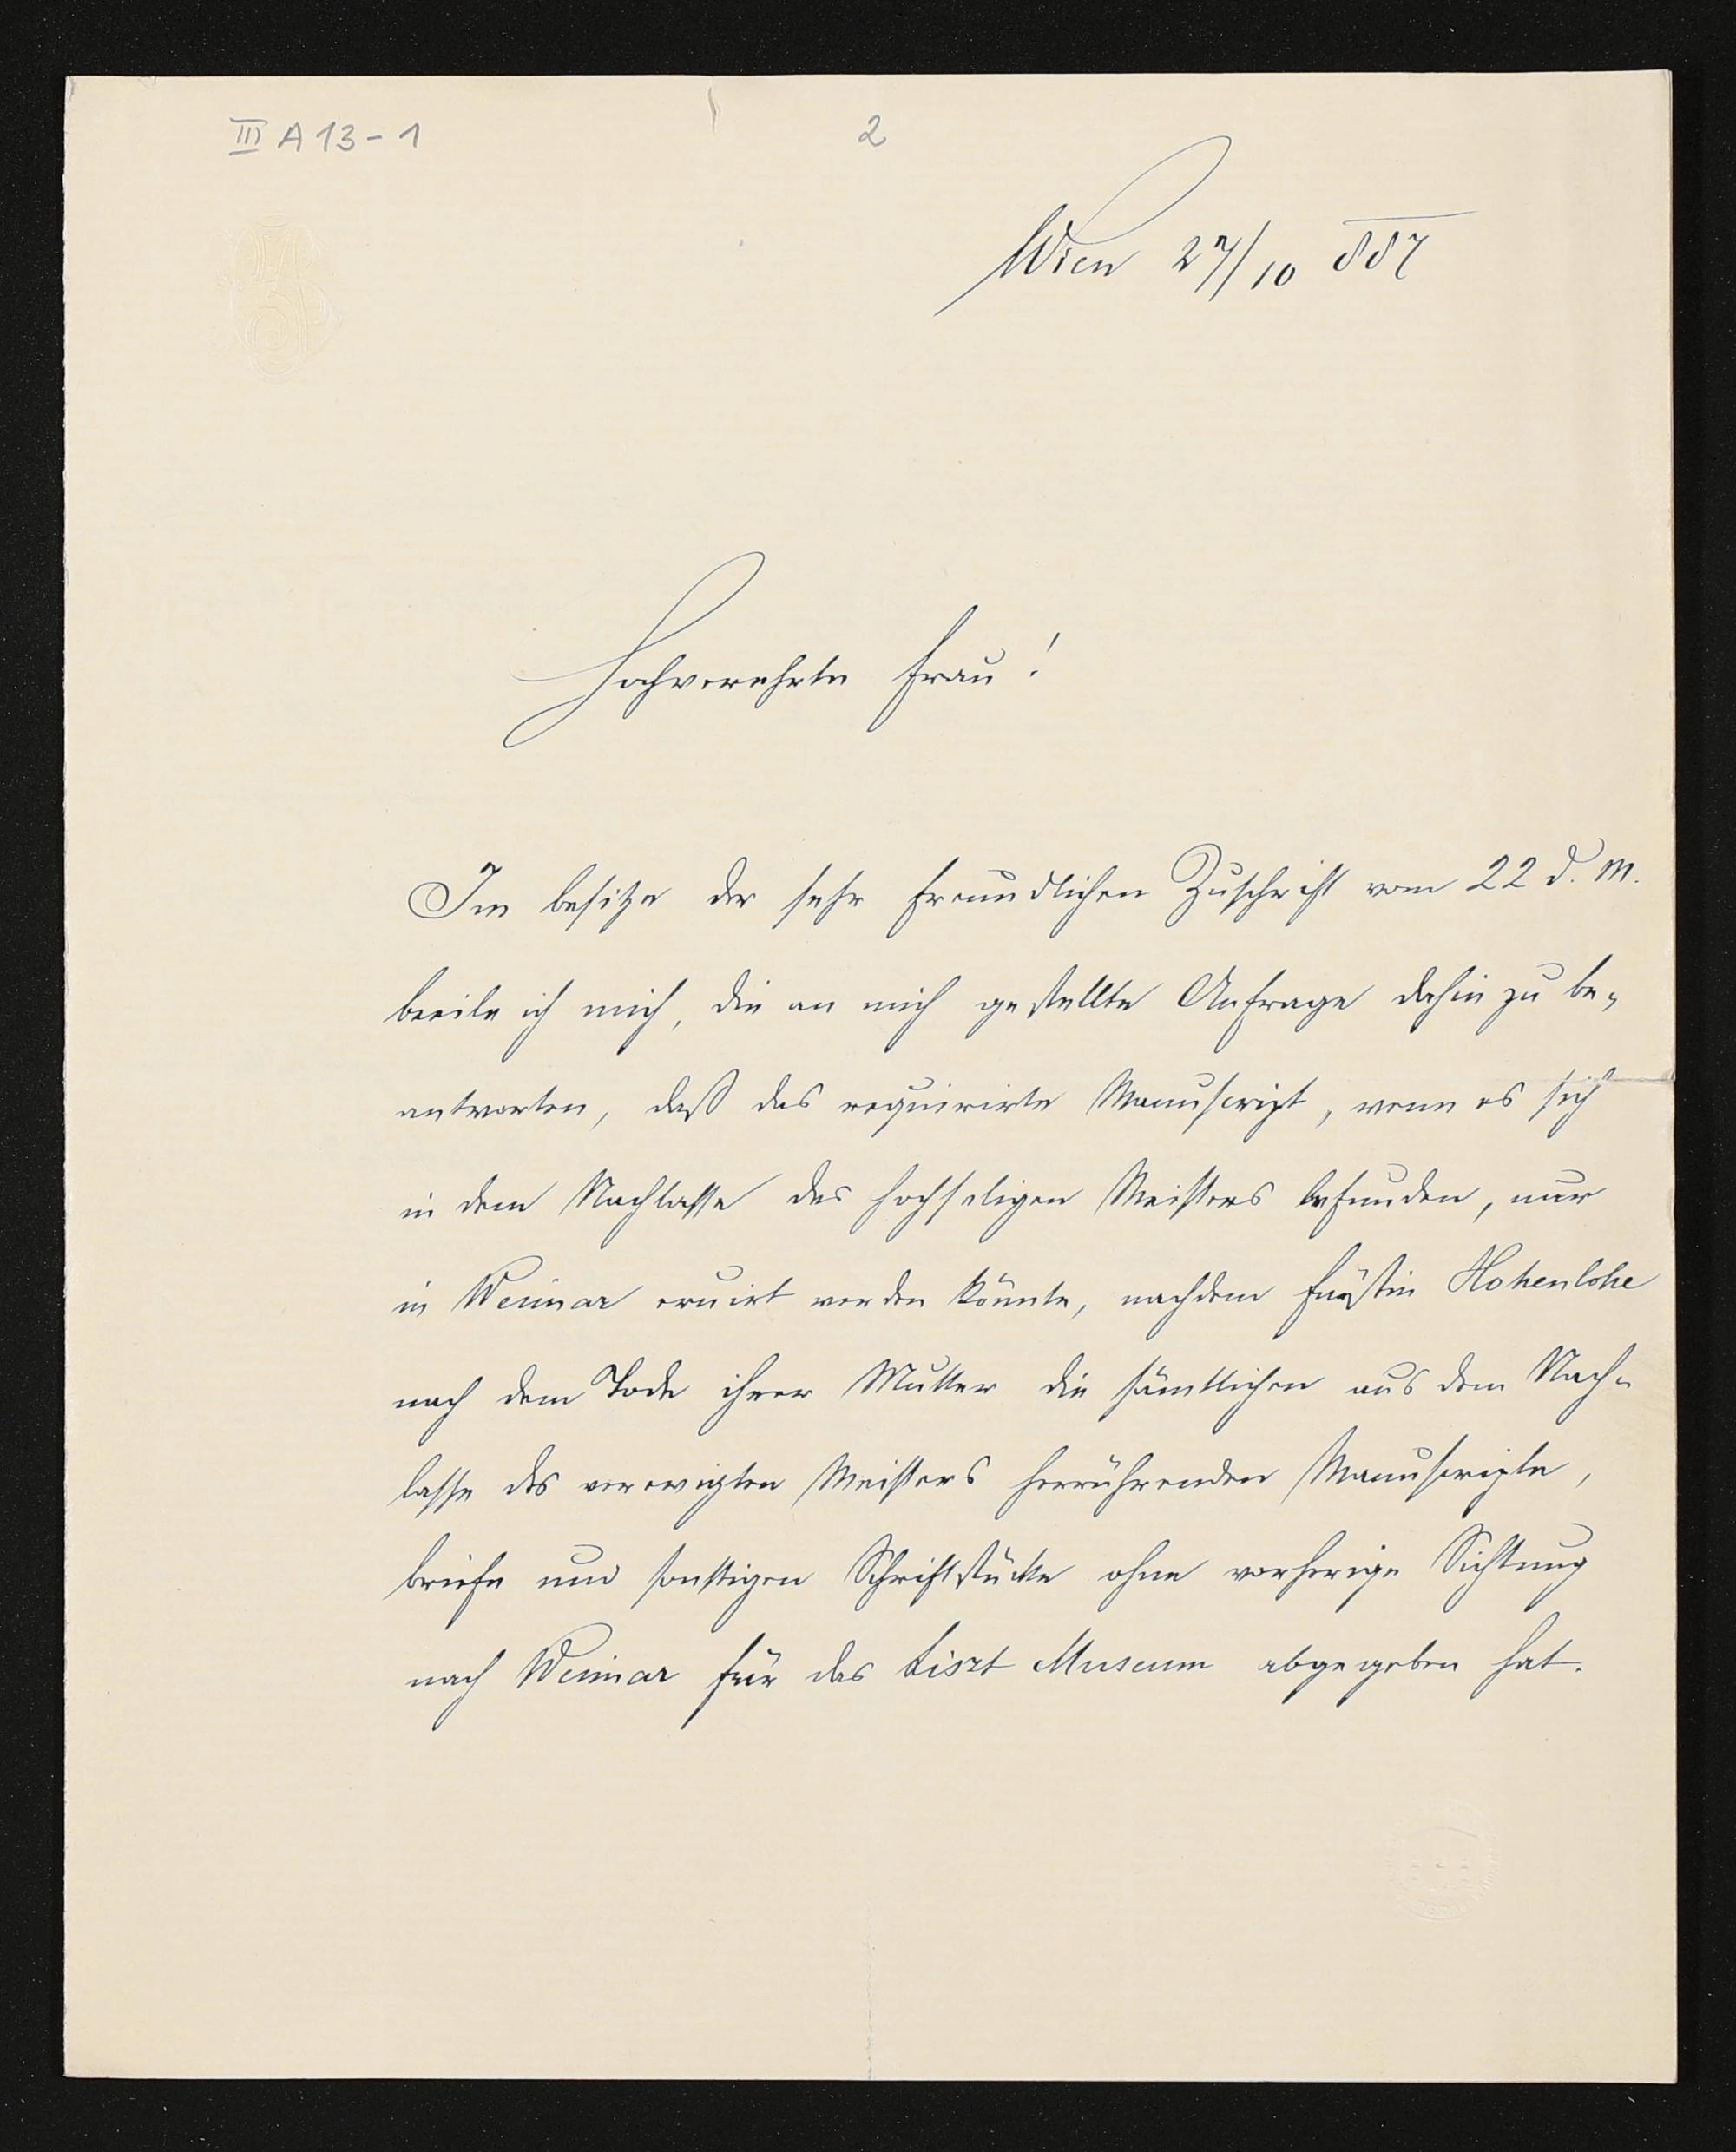 III A 13-1
2
Wien 27/10 887
Hochverehrte Frau!
Im besitze der sehr freundlichen Zuschrift vom 22 d. M.
beeile ich mich, die an mich gestellte Anfrage dahin zu be-
antworten, daß das requirirte Manuscript, wenn es sich
in dem Nachlasse des hochseligen Meisters befunden, nur
in Weimar eruirt werden könnte, nachdem Fürstin Hohenlohe
nach dem Tode ihrer Mutter die sämtlichen aus dem Nach-
lasse des verewigten Meisters herrührenden Manuscripte,
briefe und sonstigen Schriftstücke ohne vorherige Sichtung
nach Weimar für das Liszt Museum abgegeben hat.